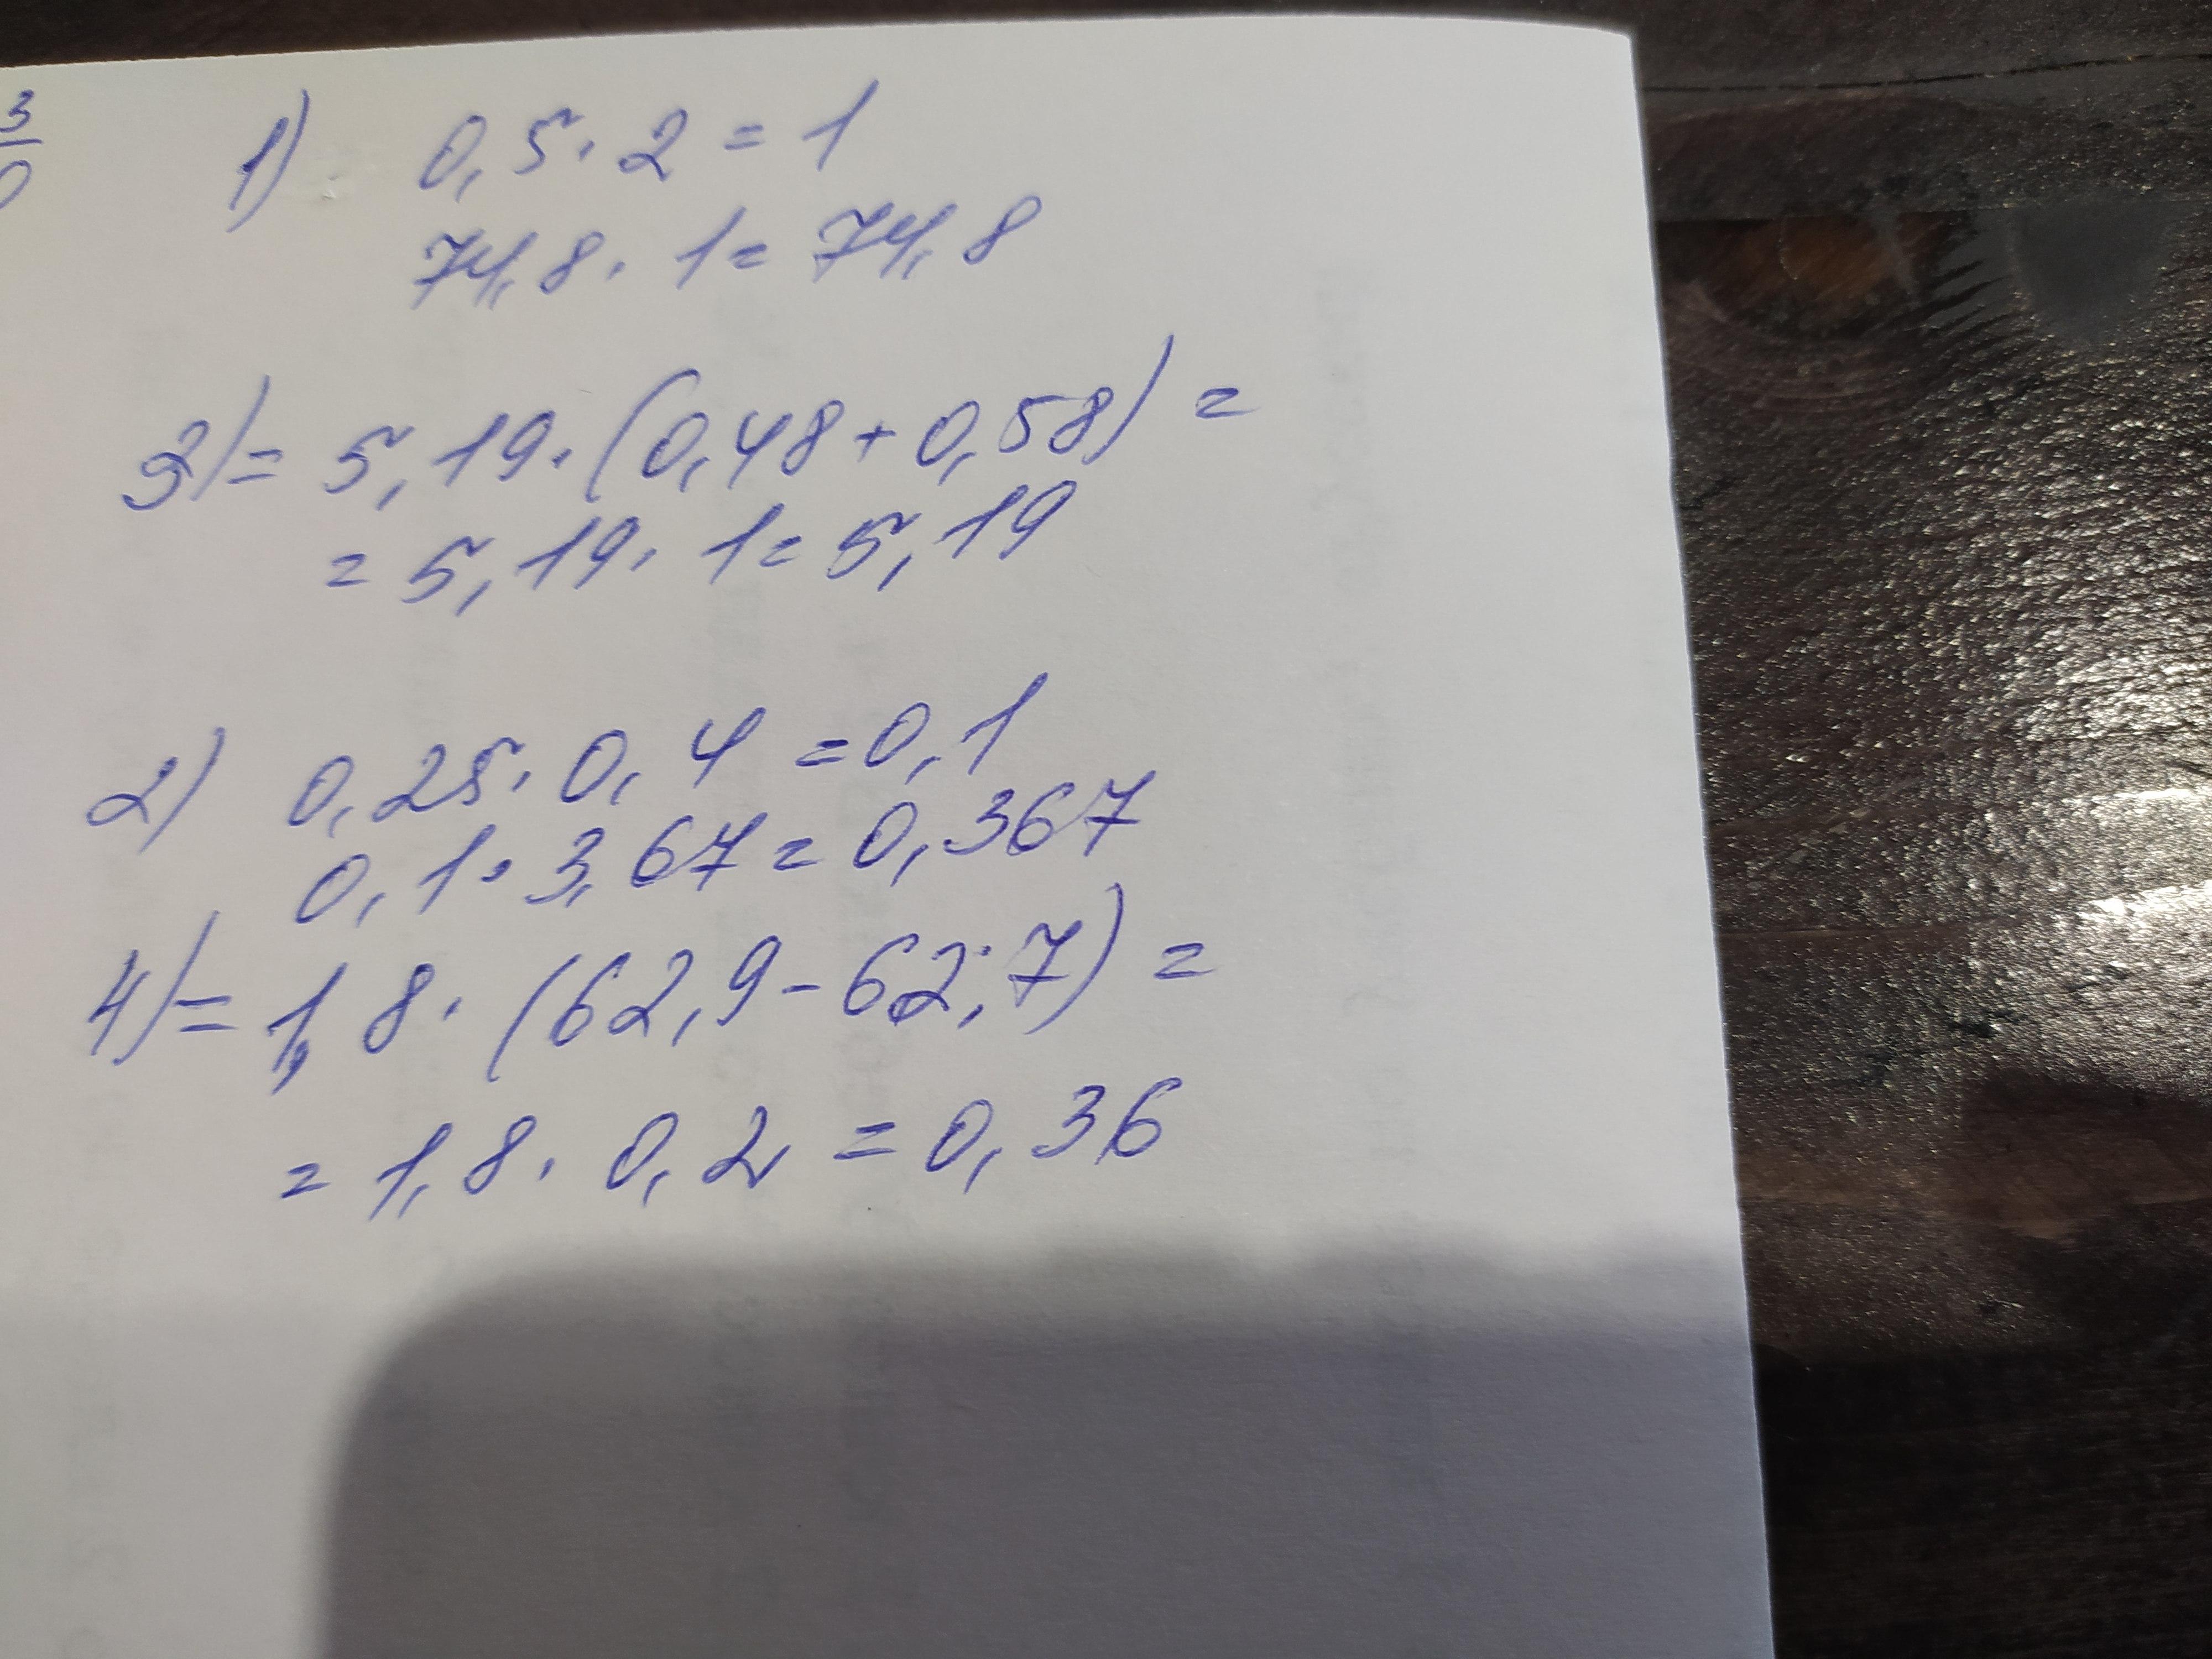 3
0
1) 0,5 · 2 = 1
74,8 · 1 = 74,8
3) = 5,19 · (0,48 + 0,58) =
= 5,19 · 1 = 5,19
2) 0,25 · 0,4 = 0,1
0,1 · 3,67 = 0,367
4) = 1,8 · (62,9 - 62,7) =
= 1,8 · 0,2 = 0,36